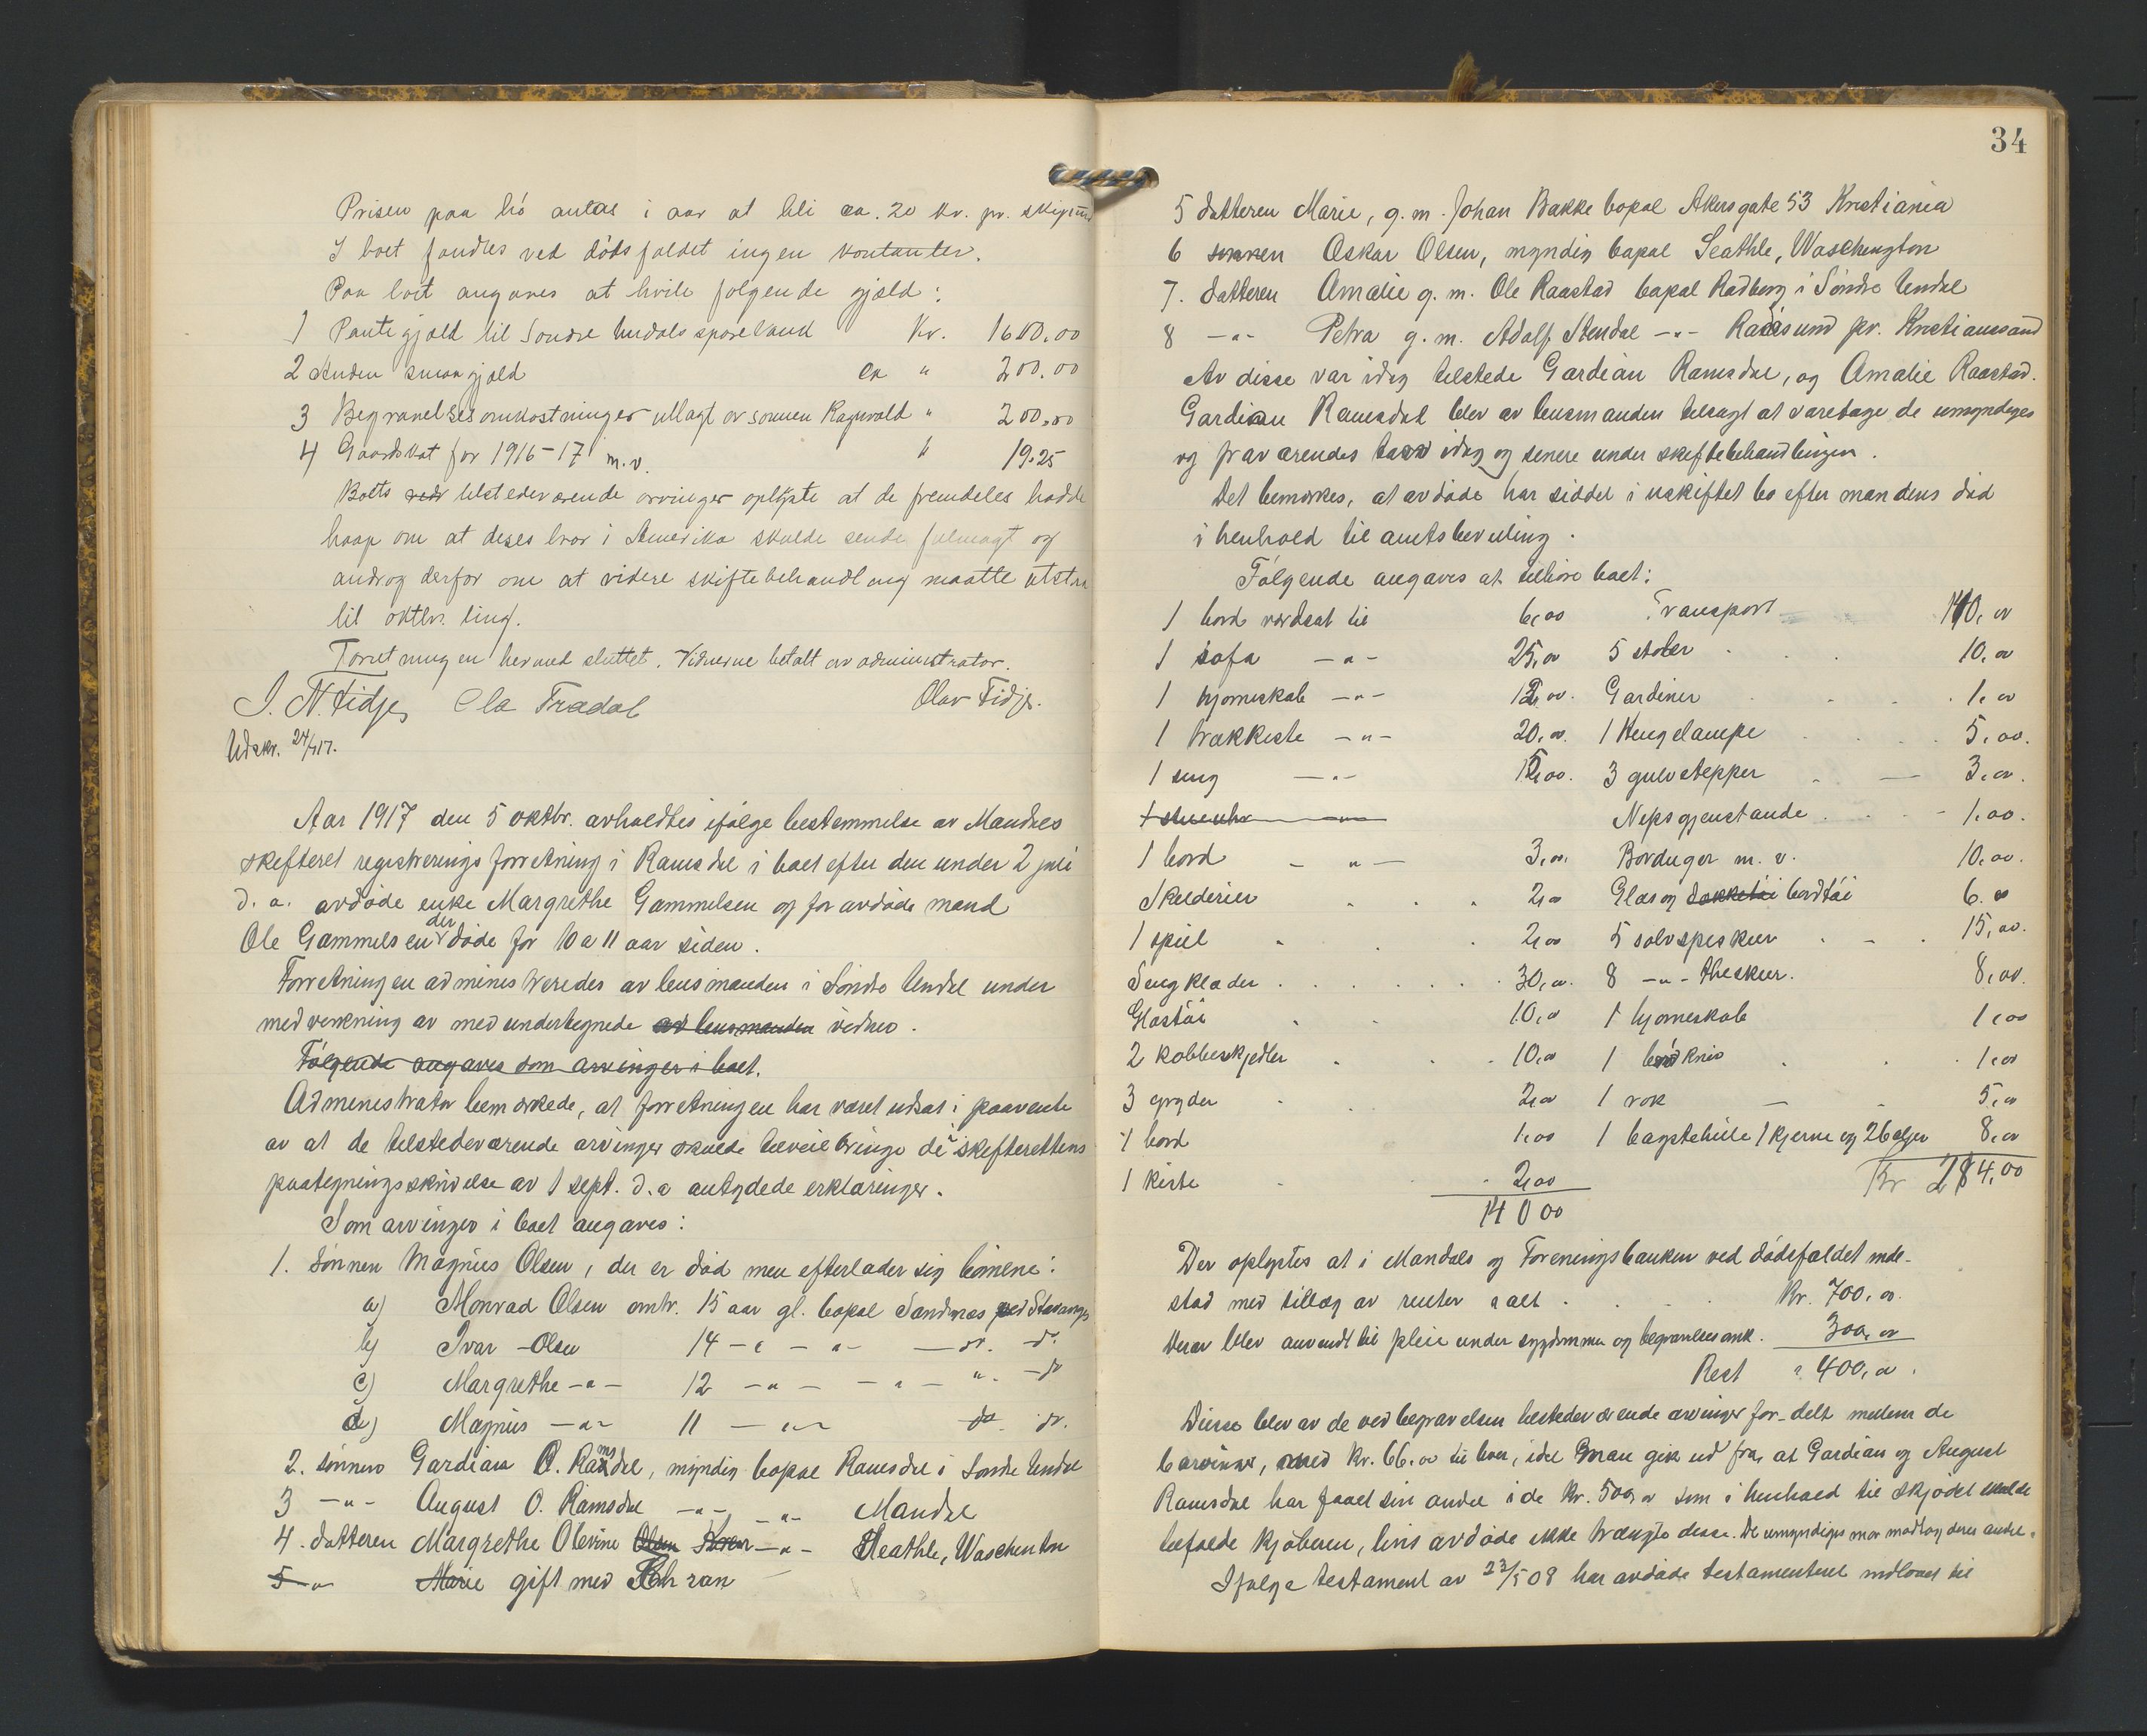 Prisen paa hö antas i aar at bli ca. 20 kr. pr. skippund
I boet fandtes ved dödsfaldet ingen kontanter.
Paa boet angaves at hvile fölgende gjæld:
1 Pantegjæld til Söndre Undals sparebank Kr. 1600.00
2 Anden smaagjæld ca " 200.00
3 Begravelsesomkostninger utlagt av sönnen Ragnvald " 200.00
4 Gaardskat for 1916-17 m.v. " 19.25
Boets tilstedeværende arvinger oplyste at de fremdeles hadde
haap om at deres bror i Amerika skulde sende fulmagt og
androg derfor om at videre skiftebehandling maatte utstaa
til oktbr. ting.
Forretningen hermed sluttet. Vidnerne betalt av administrator.
J. N. Fidje Ola Trædal Olav Fidje.
Udskr. 24/9 17.
Aar 1917 den 5 oktbr. avholdtes ifölge bestemmelse av Mandals
skifteret registreringsforretning i Ramsdal i boet efter den under 2 juli
d. a. avdöde enke Margrethe Gammelsen og for avdöde mand
Ole Gammelsen der döde for 10 a 11 aar siden.
Forretningen administreredes av lensmanden i Söndre Undal under
medvirkning av medundertegnede av lensmanden vidner.
Fölgende angaves som arvinger i boet.
Administrator bemærkede, at forretningen har været udsat i paavente
av at de tilstedeværende arvinger skulde tilveiebringe de i skifterettens
paategningsskrivelse av 1 sept. d.a antydede erklæringer.
Som arvinger i boet angaves:
1. Sönnen Magnus Olsen, der er död men efterlader sig börnene:
a) Monrad Olsen omtr. 15 aar gl. bopæl Sandnæs ved Stavanger
b) Ivar Olsen 14 - " - " - do. do.
c) Margrethe - " - 12 - " - - " - " - do
d) Magnus - " - 11 - " - do do.
2. sönnen Gardian O. Ramsdal, myndig bopæl Ramsdal i Söndre Undal
3 - " - August O. Ramsdal - " - - " - Mandal
4. datteren Margrethe Olevine Olsen - " - Seathle, Waschenton
5 " Marie gift med
34
5 datteren Marie, g. m. Johan Bakke bopæl Akersgate 53 Kristiania
6 sönnen Oskar Olsen, myndig bopæl Seathle, Waschengton
7. datteren Amalie g. m. Ole Raastad bopæl Rødberg i Söndre Undal
8 - " - Petra g. m. Adolf Stendal - " - Randøsund pr. Kristianssand
Av disse var idag tilstede Gardian Ramsdal, og Amalie Raastad.
Gardian Ramsdal blev av lensmanden tilsagt at varetage de umyndiges
og fraværendes tarv idag og senere under skiftebehandlingen.
Det bemerkes, at avdöde har siddet i uskiftet bo efter mandens död
i henhold til amtsbevilling.
Fölgende angaves at tilhöre boet:
1 bord værdsat til 6,00 Transport 140,00
1 sofa - " - 25,00 5 stoler 10,00
1 hjorneskab - " - 12,00. Gardiner 1,00
1 trækkiste - " - 20,00. 1 Hengelampe 5,00.
1 seng - " - 15,00. 3 gulvtepper 3,00.
1 stueuhr - " - Nipsgjenstande 1,00.
1 bord - " - 3,00. Borduger m. v. 10,00.
Skilderier 2,00 Glas og dækketöi bordtöi 6.00
1 speil 2,00 5 sölvspiskeer 15,00.
Sengklæder 30,00. 8 - " - theskeer. 8,00.
Glastöi 10,00 1 hjorneskab 1,00
2 kobberkjedler 10,00 1 bordkniv 1,00
3 gryder 2,00 1 rok 5,00
1 bord 1,00 1 bagstehille 1 kjerne og 2 bøljer 8,00
1 kiste 2,00 Kr 214,00
140 00
Der oplystes at i Mandals og Foreningsbanken ved dödsfaldet inde-
stod med tillæg av renter ialt Kr. 700,00.
Derav blev anvendt til pleie under sygdommen og begravelsesomk. 300,00
Rest " 400,00.
Disse blev av de ved begravelsen tilstedeværende arvinger for-delt mellem de
6 arvinger, med kr. 66,00 til hver, idet man gik ud fra, at Gardian og August
Ramsdal har faaet sin andel i de kr. 500,00 som i henhold til skjödet skulde
tilfalde kjöberen, hvis avdöde ikke trængte disse. De umyndiges mor modtog deres andel.
Ifölge testament av 23/5 08 har avdöde testamenteret indboet til